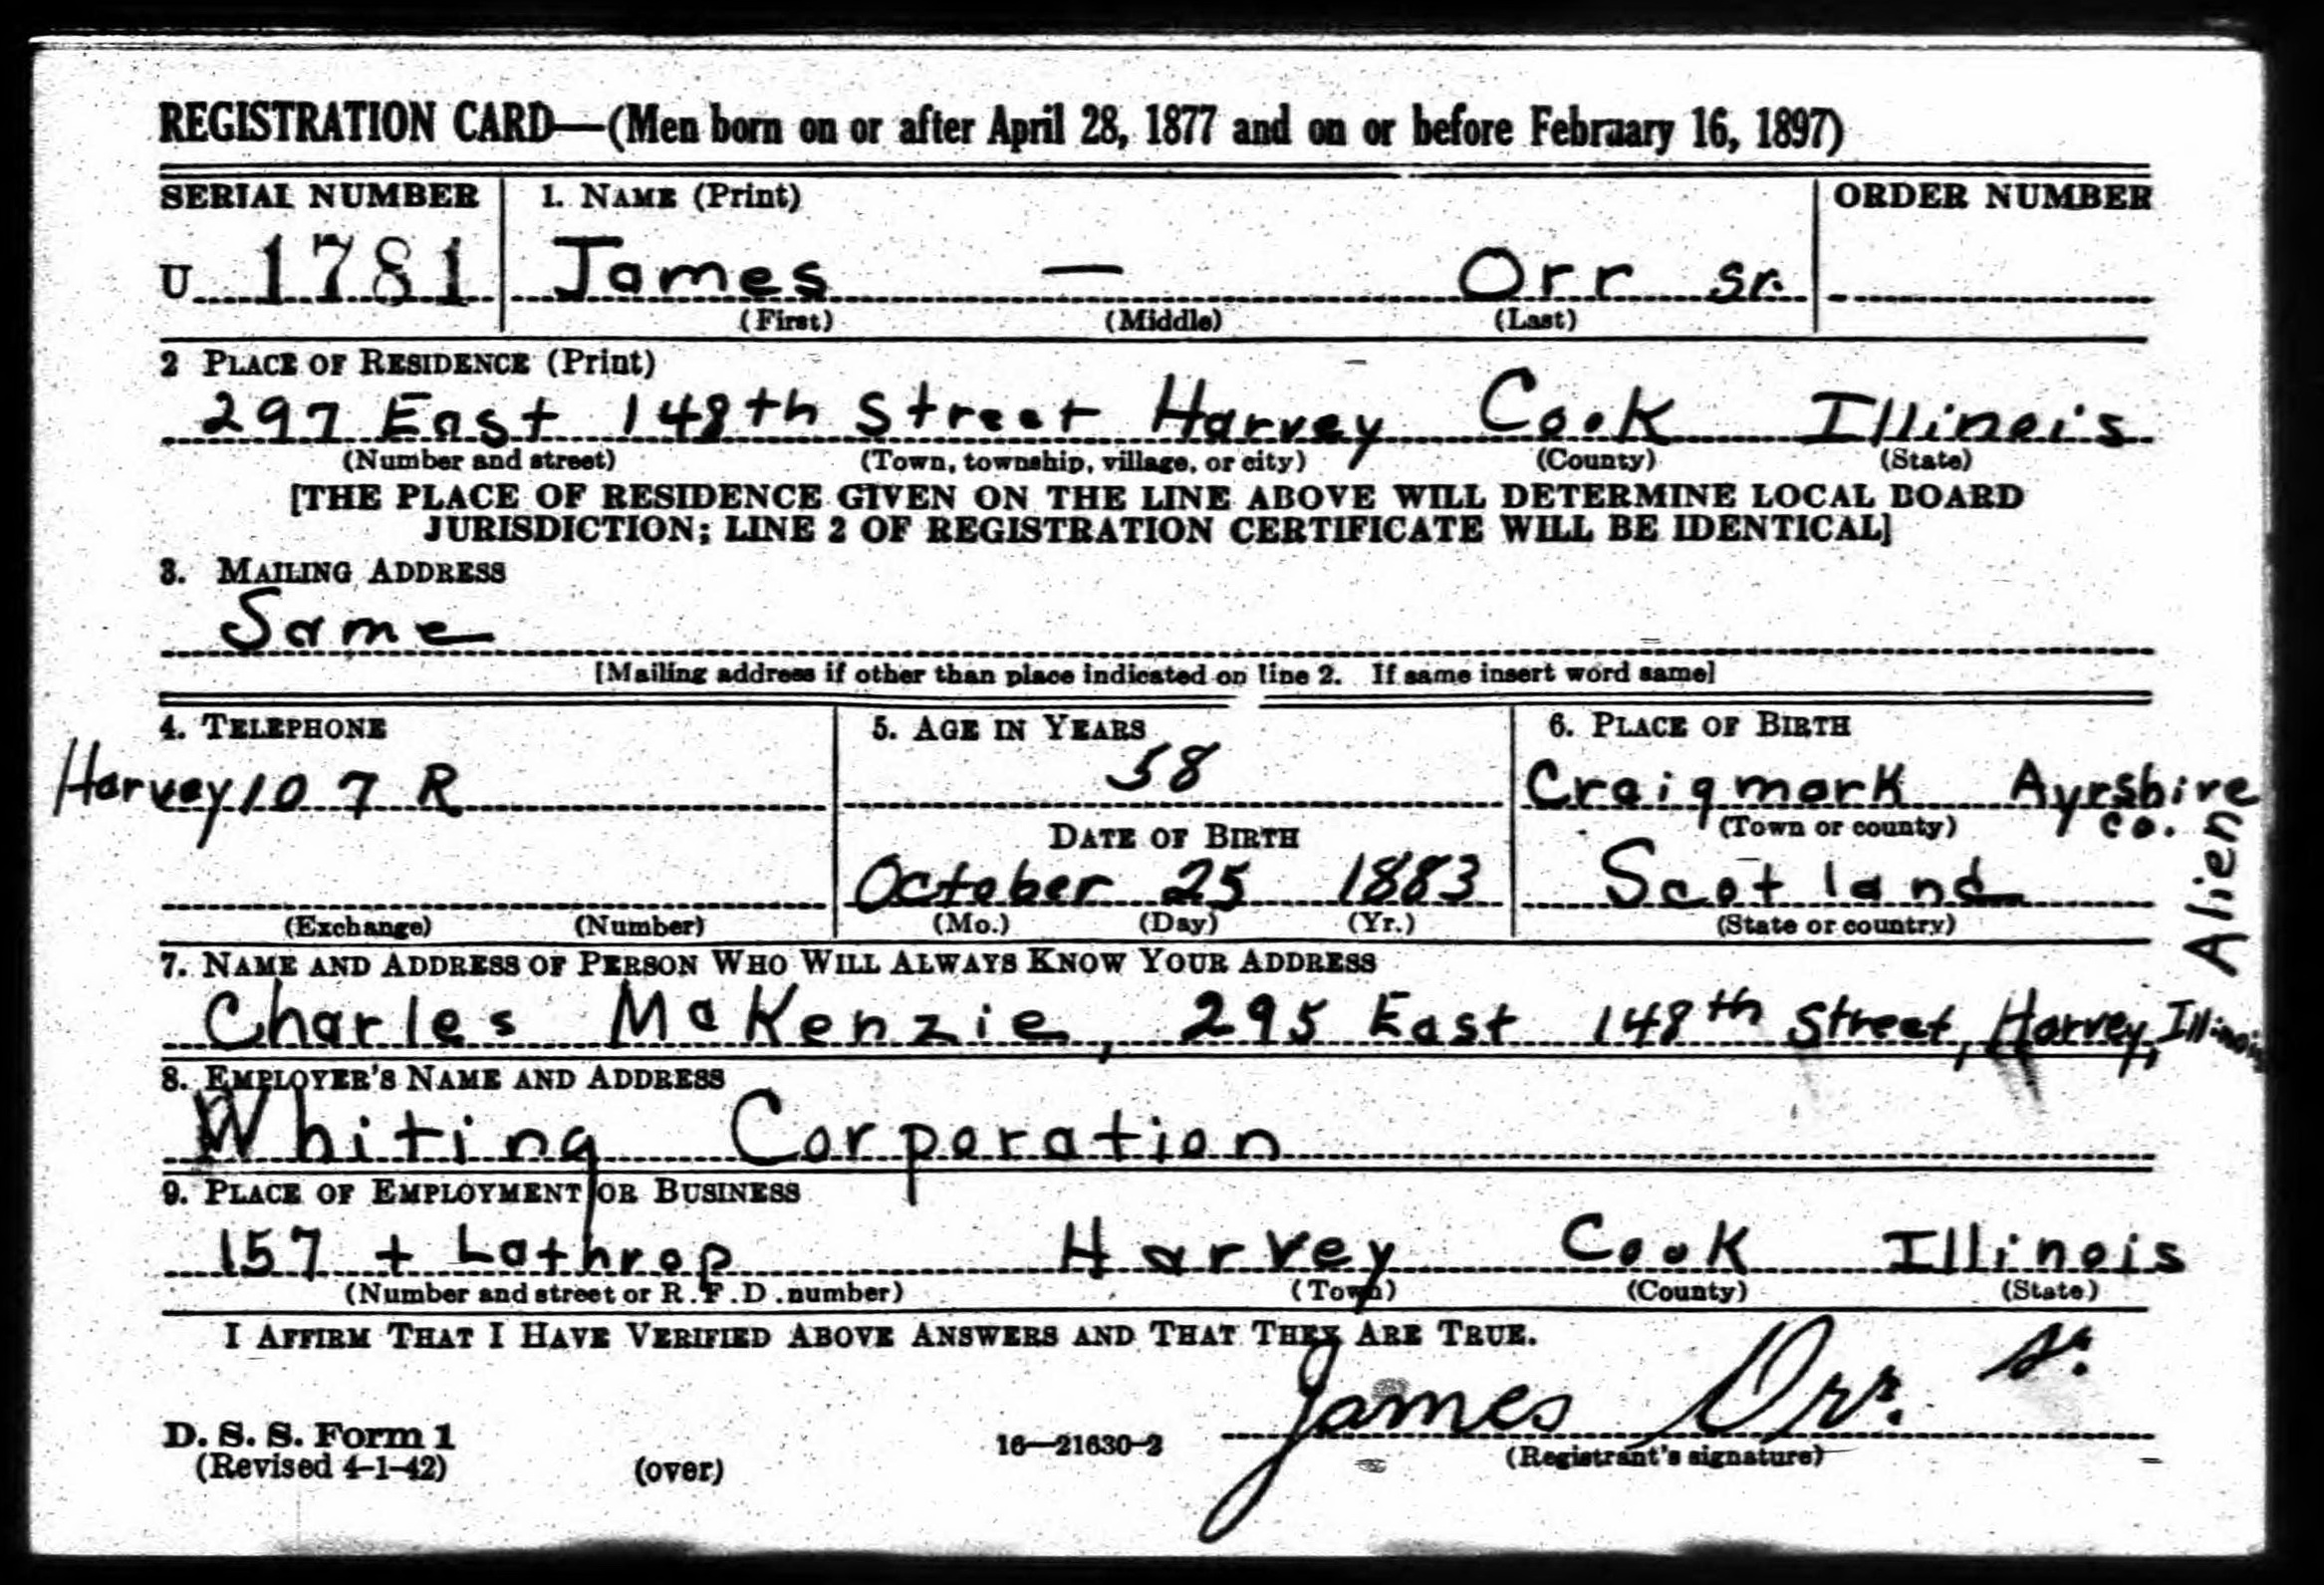 REGISTRATION CARD—(Men born on or after April 28, 1877 and on or before February 16, 1897)
SERIAL NUMBER 1. NAME (Print) ORDER NUMBER
U 1781 James — Orr Sr.
(First) (Middle) (Last)
2 PLACE OF RESIDENCE (Print)
297 East 148th Street Harvey Cook Illinois
(Number and street) (Town, township, village, or city) (County) (State)
[THE PLACE OF RESIDENCE GIVEN ON THE LINE ABOVE WILL DETERMINE LOCAL BOARD
JURISDICTION; LINE 2 OF REGISTRATION CERTIFICATE WILL BE IDENTICAL]
3. MAILING ADDRESS
Same
[Mailing address if other than place indicated on line 2. If same insert word same]
4. TELEPHONE 5. AGE IN YEARS 6. PLACE OF BIRTH
Harvey 107 R 58 Craigmark Ayrshire
DATE OF BIRTH (Town or county) co.
October 25 1883 Scotland
(Exchange) (Number) (Mo.) (Day) (Yr.) (State or country)
Alien
7. NAME AND ADDRESS OF PERSON WHO WILL ALWAYS KNOW YOUR ADDRESS
Charles McKenzie, 295 East 148th Street, Harvey, Illinois
8. EMPLOYER'S NAME AND ADDRESS
Whiting Corporation
9. PLACE OF EMPLOYMENT OR BUSINESS
157 + Lathrop Harvey Cook Illinois
(Number and street or R.F.D. number) (Town) (County) (State)
I AFFIRM THAT I HAVE VERIFIED ABOVE ANSWERS AND THAT THEY ARE TRUE.
James Orr. Sr.
D. S. S. Form 1 16—21630-2 (Registrant's signature)
(Revised 4-1-42) (over)